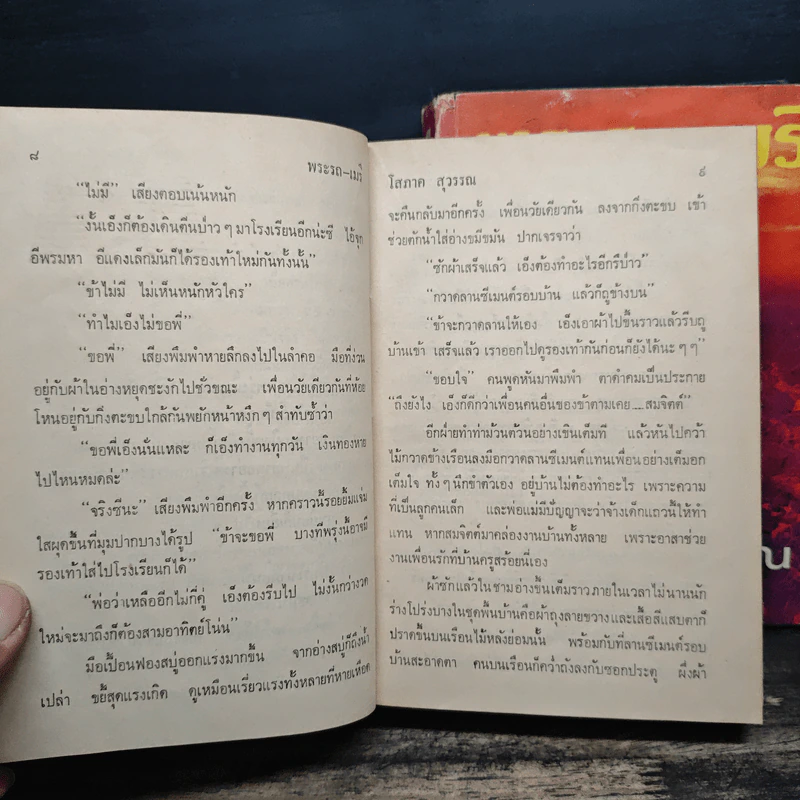 ๘
พระรถ-เมรี
“ไม่มี” เสียงตอบเน้นหนัก
“งั้นเอ็งก็ต้องเดินตีนบ่าว ๆ มาโรงเรียนอีกน่ะซี ไอ้จุก
อีพรมหา อีแดงเล็กมันก็ได้รองเท้าใหม่กันทั้งนั้น”
“ข้าไม่มี ไม่เห็นหนักหัวใคร”
“ทำไมเอ็งไม่ขอพี่”
“ขอพี่” เสียงพึมพำหายลึกลงไปในลำคอ มือที่ง่วน
อยู่กับผ้าในอ่างหยุดชะงักไปชั่วขณะ เพื่อนวัยเดียวกันที่ห้อย
โหนอยู่กับกิ่งตะขบใกล้กันพยักหน้าหงึก ๆ สำทับซ้ำว่า
“ขอพี่เอ็งนั่นแหละ ก็เอ็งทำงานทุกวัน เงินทองหาย
ไปไหนหมดล่ะ”
“จริงซีนะ” เสียงพึมพำอีกครั้ง หากคราวนี้รอยยิ้มแจ่ม
ใสผุดขึ้นที่มุมปากบางได้รูป “ข้าจะขอพี่ บางทีพรุ่งนี้อาจมี
รองเท้าใส่ไปโรงเรียนก็ได้”
“พ่อว่าเหลืออีกไม่กี่คู่ เอ็งต้องรีบไป ไม่งั้นกว่างวด
ใหม่จะมาถึงก็ต้องสามอาทิตย์โน่น”
มือเปื้อนฟองสบู่ออกแรงมากขึ้น จากอ่างสบู่ก็ถึงน้ำ
เปล่า ขยี้สุดแรงเกิด ดูเหมือนเรี่ยวแรงทั้งหลายที่หายเหือด
โสภาค สุวรรณ
๙
จะคืนกลับมาอีกครั้ง เพื่อนวัยเดียวกัน ลงจากกิ่งตะขบ เข้า
ช่วยตักน้ำใส่อ่างขมีขมัน ปากเจรจาว่า
“ซักผ้าเสร็จแล้ว เอ็งต้องทำอะไรอีกรึบ่าว”
“กวาดลานซีเมนต์รอบบ้าน แล้วก็ถูข้างบน”
“ข้าจะกวาดลานให้เอง เอ็งเอาผ้าไปขึ้นราวแล้วรีบถู
บ้านเข้า เสร็จแล้ว เราออกไปดูรองเท้ากันก่อนก็ยังได้นะ ๆ ๆ”
“ขอบใจ” คนพูดหันมาพึมพำ ตาดำคมเป็นประกาย
“ถึงยังไง เอ็งก็ดีกว่าเพื่อนคนอื่นของข้าตามเคย สมจิตต์”
อีกฝ่ายทำท่าม้วนต้วนอย่างเขินเต็มที แล้วหันไปคว้า
ไม้กวาดข้างเรือนลงมือกวาดลานซีเมนต์แทนเพื่อนอย่างเต็มอก
เต็มใจ ทั้ง ๆ นึกขำตัวเอง อยู่บ้านไม่ต้องทำอะไร เพราะความ
ที่เป็นลูกคนเล็ก และพ่อแม่มีปัญญาจะว่าจ้างเด็กแถวนี้ให้ทำ
แทน หากสมจิตต์มาคล่องงานบ้านทั้งหลาย เพราะอาสาช่วย
งานเพื่อนรักที่บ้านครูสร้อยนี่เอง
ผ้าซักแล้วในชามอ่างขึ้นเต็มราวภายในเวลาไม่นานนัก
ร่างโปร่งบางในชุดพื้นบ้านคือผ้าถุงลายขวางและเสื้อสีแสบตาก็
ปราดขึ้นบนเรือนไม้หลังย่อมนั้น พร้อมกับที่ลานซีเมนต์รอบ
บ้านสะอาดตา คนบนเรือนก็คว่ำถังลงกับซอกประตู ผึ่งผ้า